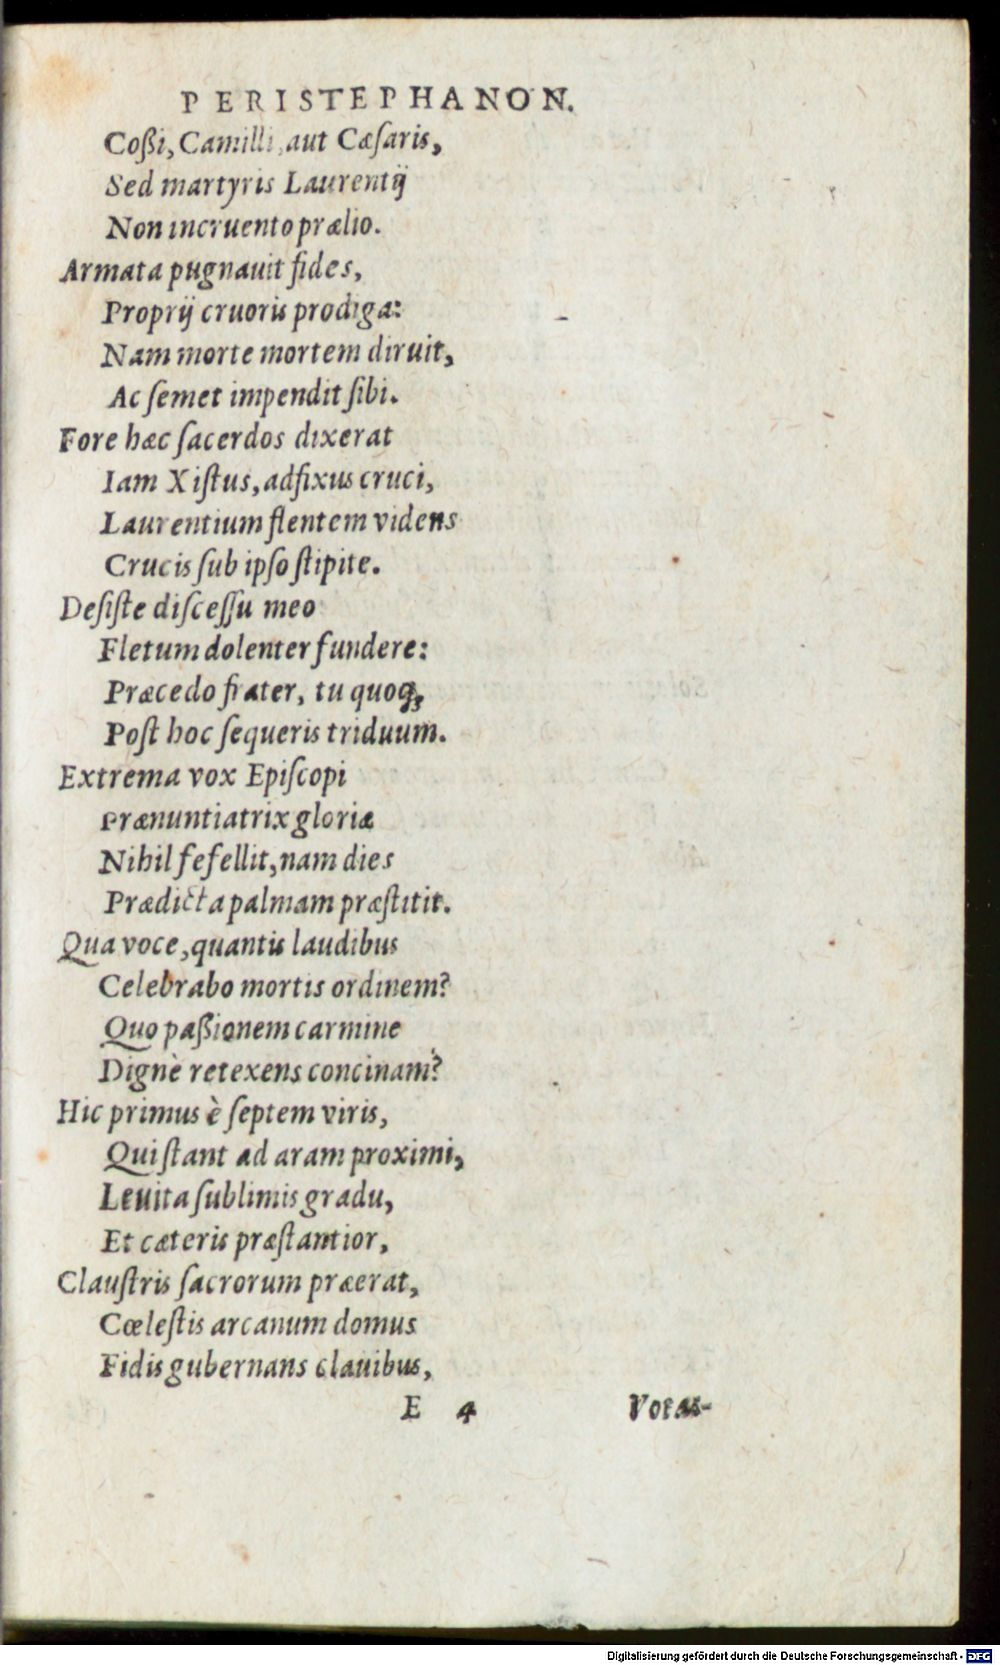 PERISTEPHANON.
Coßi, Camilli, aut Cæſaris,
Sed martyris Laurentij
Non incruento prælio.
Armata pugnauit fides,
Proprij cruoris prodiga:
Nam morte mortem diruit,
Ac ſemet impendit ſibi.
Fore hæc ſacerdos dixerat
Iam Xiſtus, adfixus cruci,
Laurentium flentem videns
Crucis ſub ipſo ſtipite.
Deſiſte diſceſſu meo
Fletum dolenter fundere:
Præcedo frater, tu quoq́;
Poſt hoc ſequeris triduum.
Extrema vox Epiſcopi
Prænuntiatrix gloriæ
Nihil fefellit, nam dies
Prædicta palmam præſtitit.
Qua voce, quantis laudibus
Celebrabo mortis ordinem?
Quo paßionem carmine
Dignè retexens concinam?
Hic primus è ſeptem viris,
Qui ſtant ad aram proximi,
Leuita ſublimis gradu,
Et cæteris præſtantior,
Clauſtris ſacrorum præerat,
Cœleſtis arcanum domus
Fidis gubernans clauibus,
E 4 Votas-
Digitalisierung gefördert durch die Deutsche Forschungsgemeinschaft - DFG